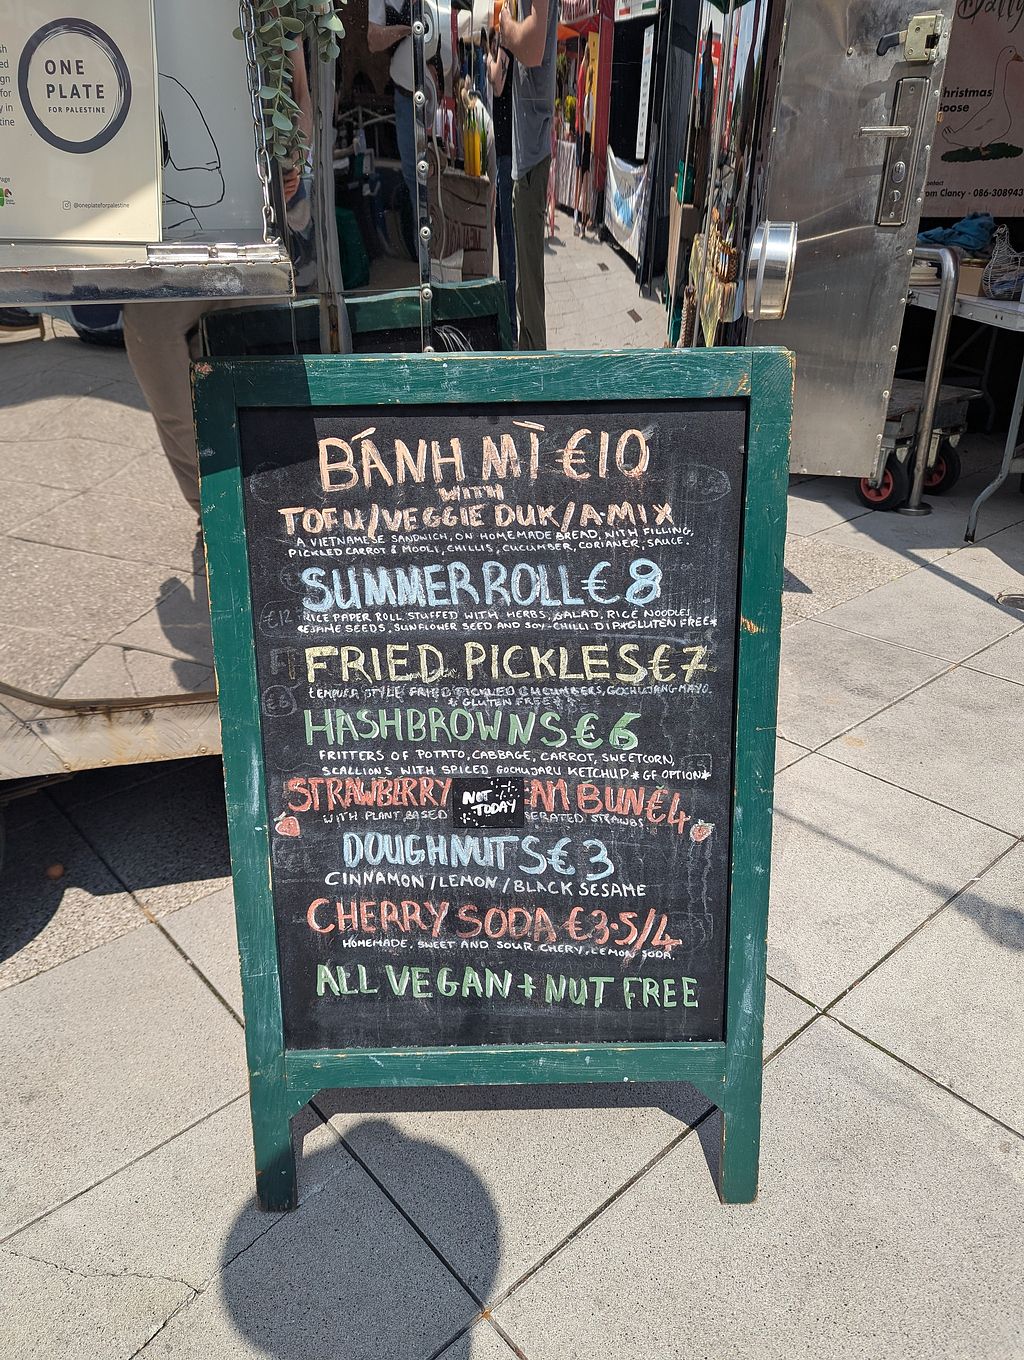 ONE
PLATE
FOR PALESTINE
@oneplateforpalestine
hristmas
oose
om Clancy - 086-308943
BÁNH MÌ €10
WITH
TOFU/VEGGIE DUK/A·MIX
A VIETNAMESE SANDWICH, ON HOMEMADE BREAD, WITH FILLING,
PICKLED CARROT & MOOLI, CHILLIS, CUCUMBER, CORIANER, SAUCE.
SUMMER ROLL €8
RICE PAPER ROLL STUFFED WITH HERBS, SALAD, RICE NOODLES
SESAME SEEDS, SUNFLOWER SEED AND SOY-CHILLI DIP*GLUTEN FREE*
FRIED PICKLES €7
TEMPURA STYLE FRIED PICKLED CUCUMBERS, GOCHUJANG-MAYO.
* GLUTEN FREE *
HASHBROWNS €6
FRITTERS OF POTATO, CABBAGE, CARROT, SWEETCORN,
SCALLIONS WITH SPICED GOCHUJARU KETCHUP * GF OPTION*
STRAWBERRY NOT TODAY AM BUN €4
WITH PLANT BASED ERATED STRAWBS
DOUGHNUTS €3
CINNAMON / LEMON / BLACK SESAME
CHERRY SODA €3·5/4
HOMEMADE, SWEET AND SOUR CHERY, LEMON SODA.
ALL VEGAN + NUT FREE